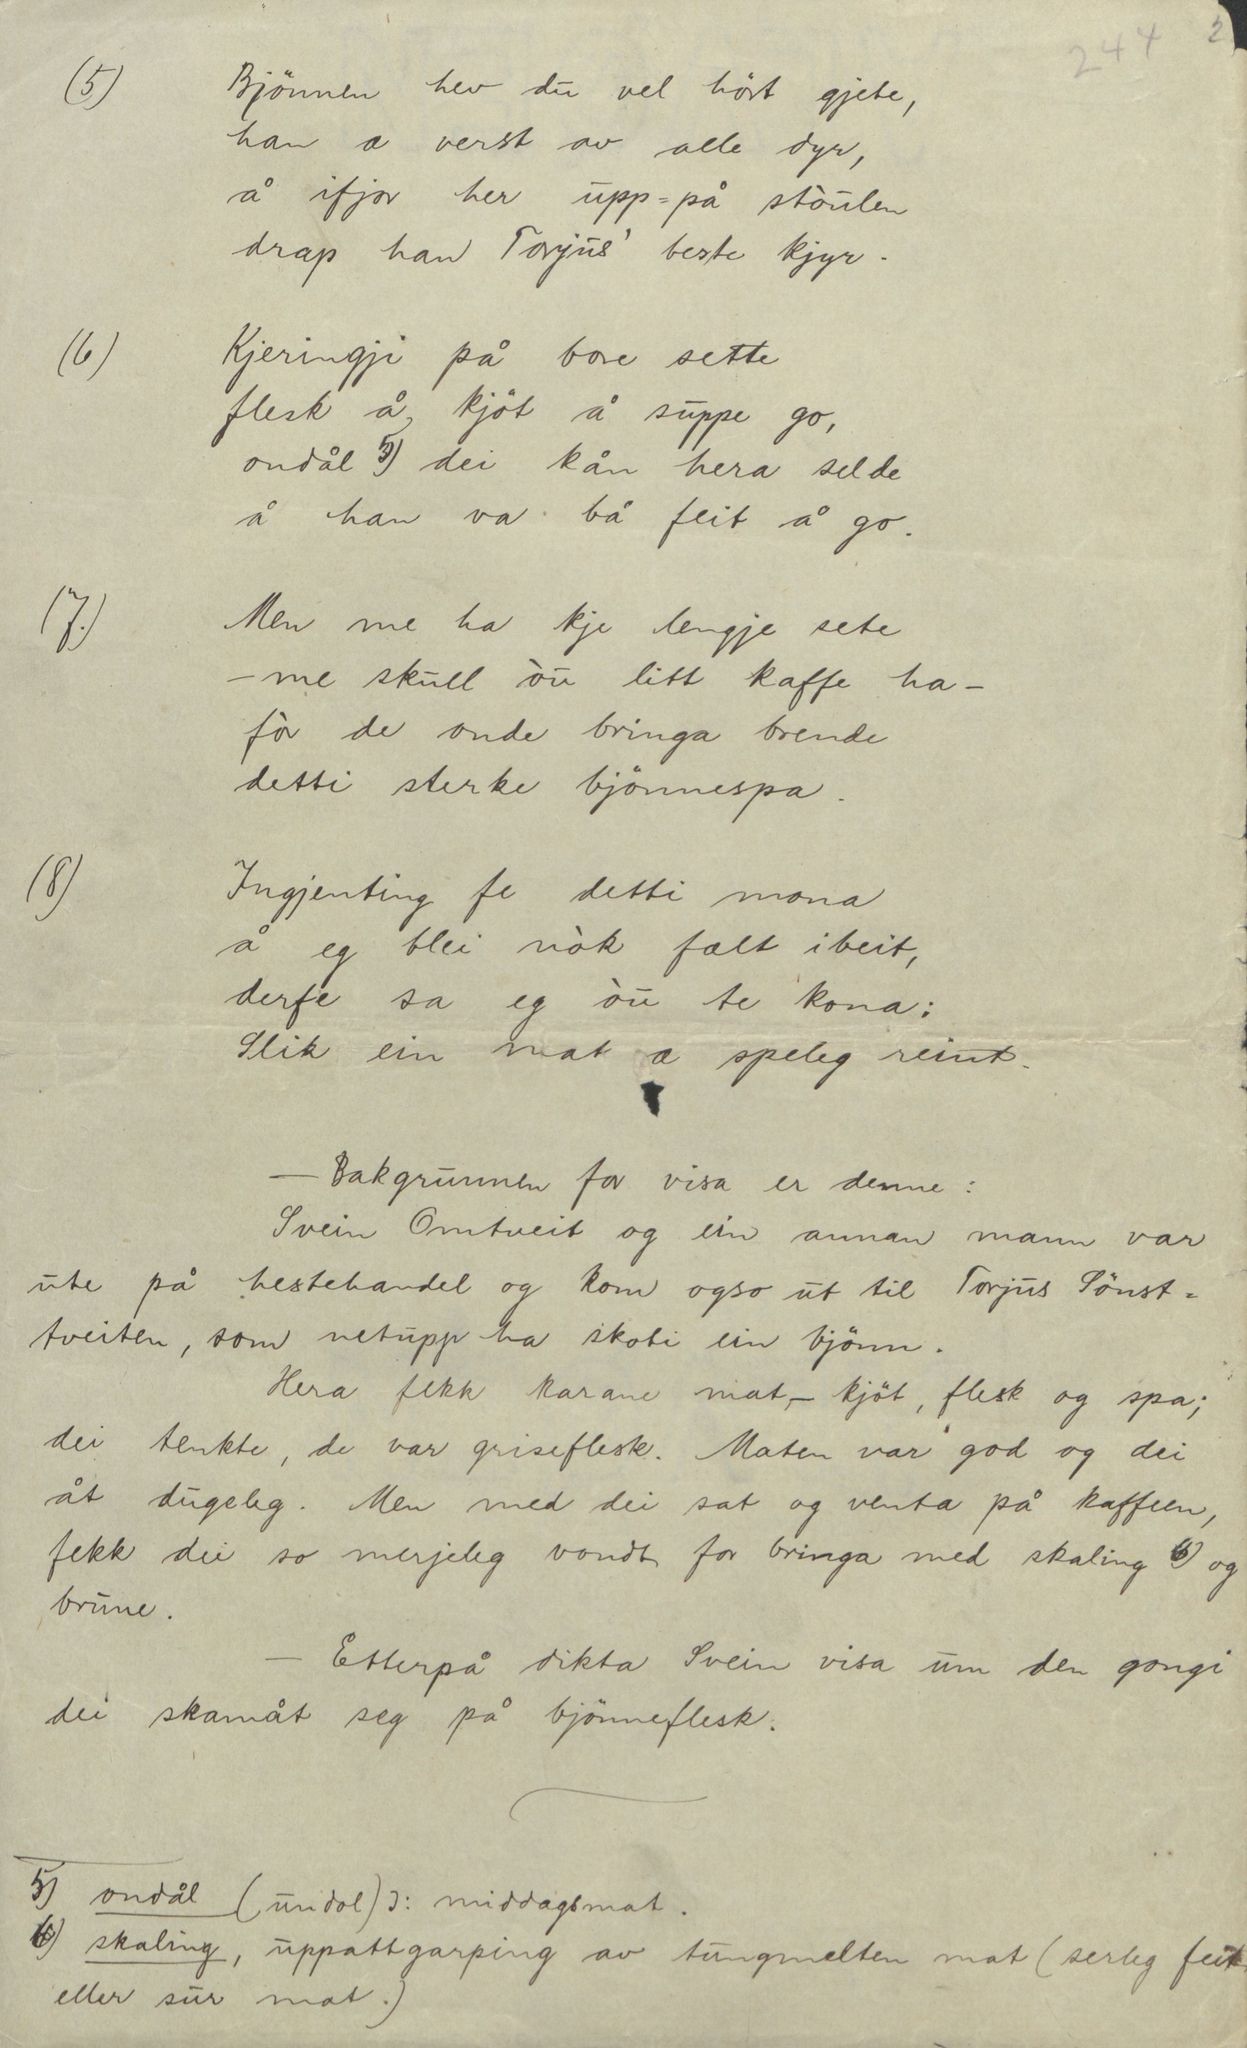 244 2
(5) Bjönnen hev du vel hört gjete,
han æ verst av alle dyr,
å ifjor her upp-på stòulen
drap han Torjus' beste kjyr.
(6) Kjeringji på bore sette
flesk å kjöt å suppe go,
ondål 5) dei kån hera selde
å han va bå feit å go.
(7.) Men me ha kje lengje sete
- me skull òu litt kaffe ha -
fòr de onde bringa brende
detti sterke bjönnespa.
(8) Ingjenting fe detti mona
å eg blei nòk fælt ibeit,
derfe sa eg òu te kona:
Slik ein mat æ speleg reint.
- Bakgrunnen for visa er denne:
Svein Omtveit og ein annan mann var
ute på hestehandel og kom ogso ut til Torjus Sönst-
tveiten, som netupp ha skoti ein bjönn.
Hera fekk karane mat, - kjöt, flesk og spa;
dei tenkte, de var griseflesk. Maten var god og dei
åt dugeleg. Men med dei sat og venta på kaffeen,
fekk dei so merjeleg vondt for bringa med skaling 6) og
brune.
- Etterpå dikta Svein visa um den gongi
dei skamåt seg på bjönneflesk.
5) ondål (undol) ɔ: middagsmat.
6) skaling, uppattgarping av tungmelten mat (serleg feit
eller sur mat.)